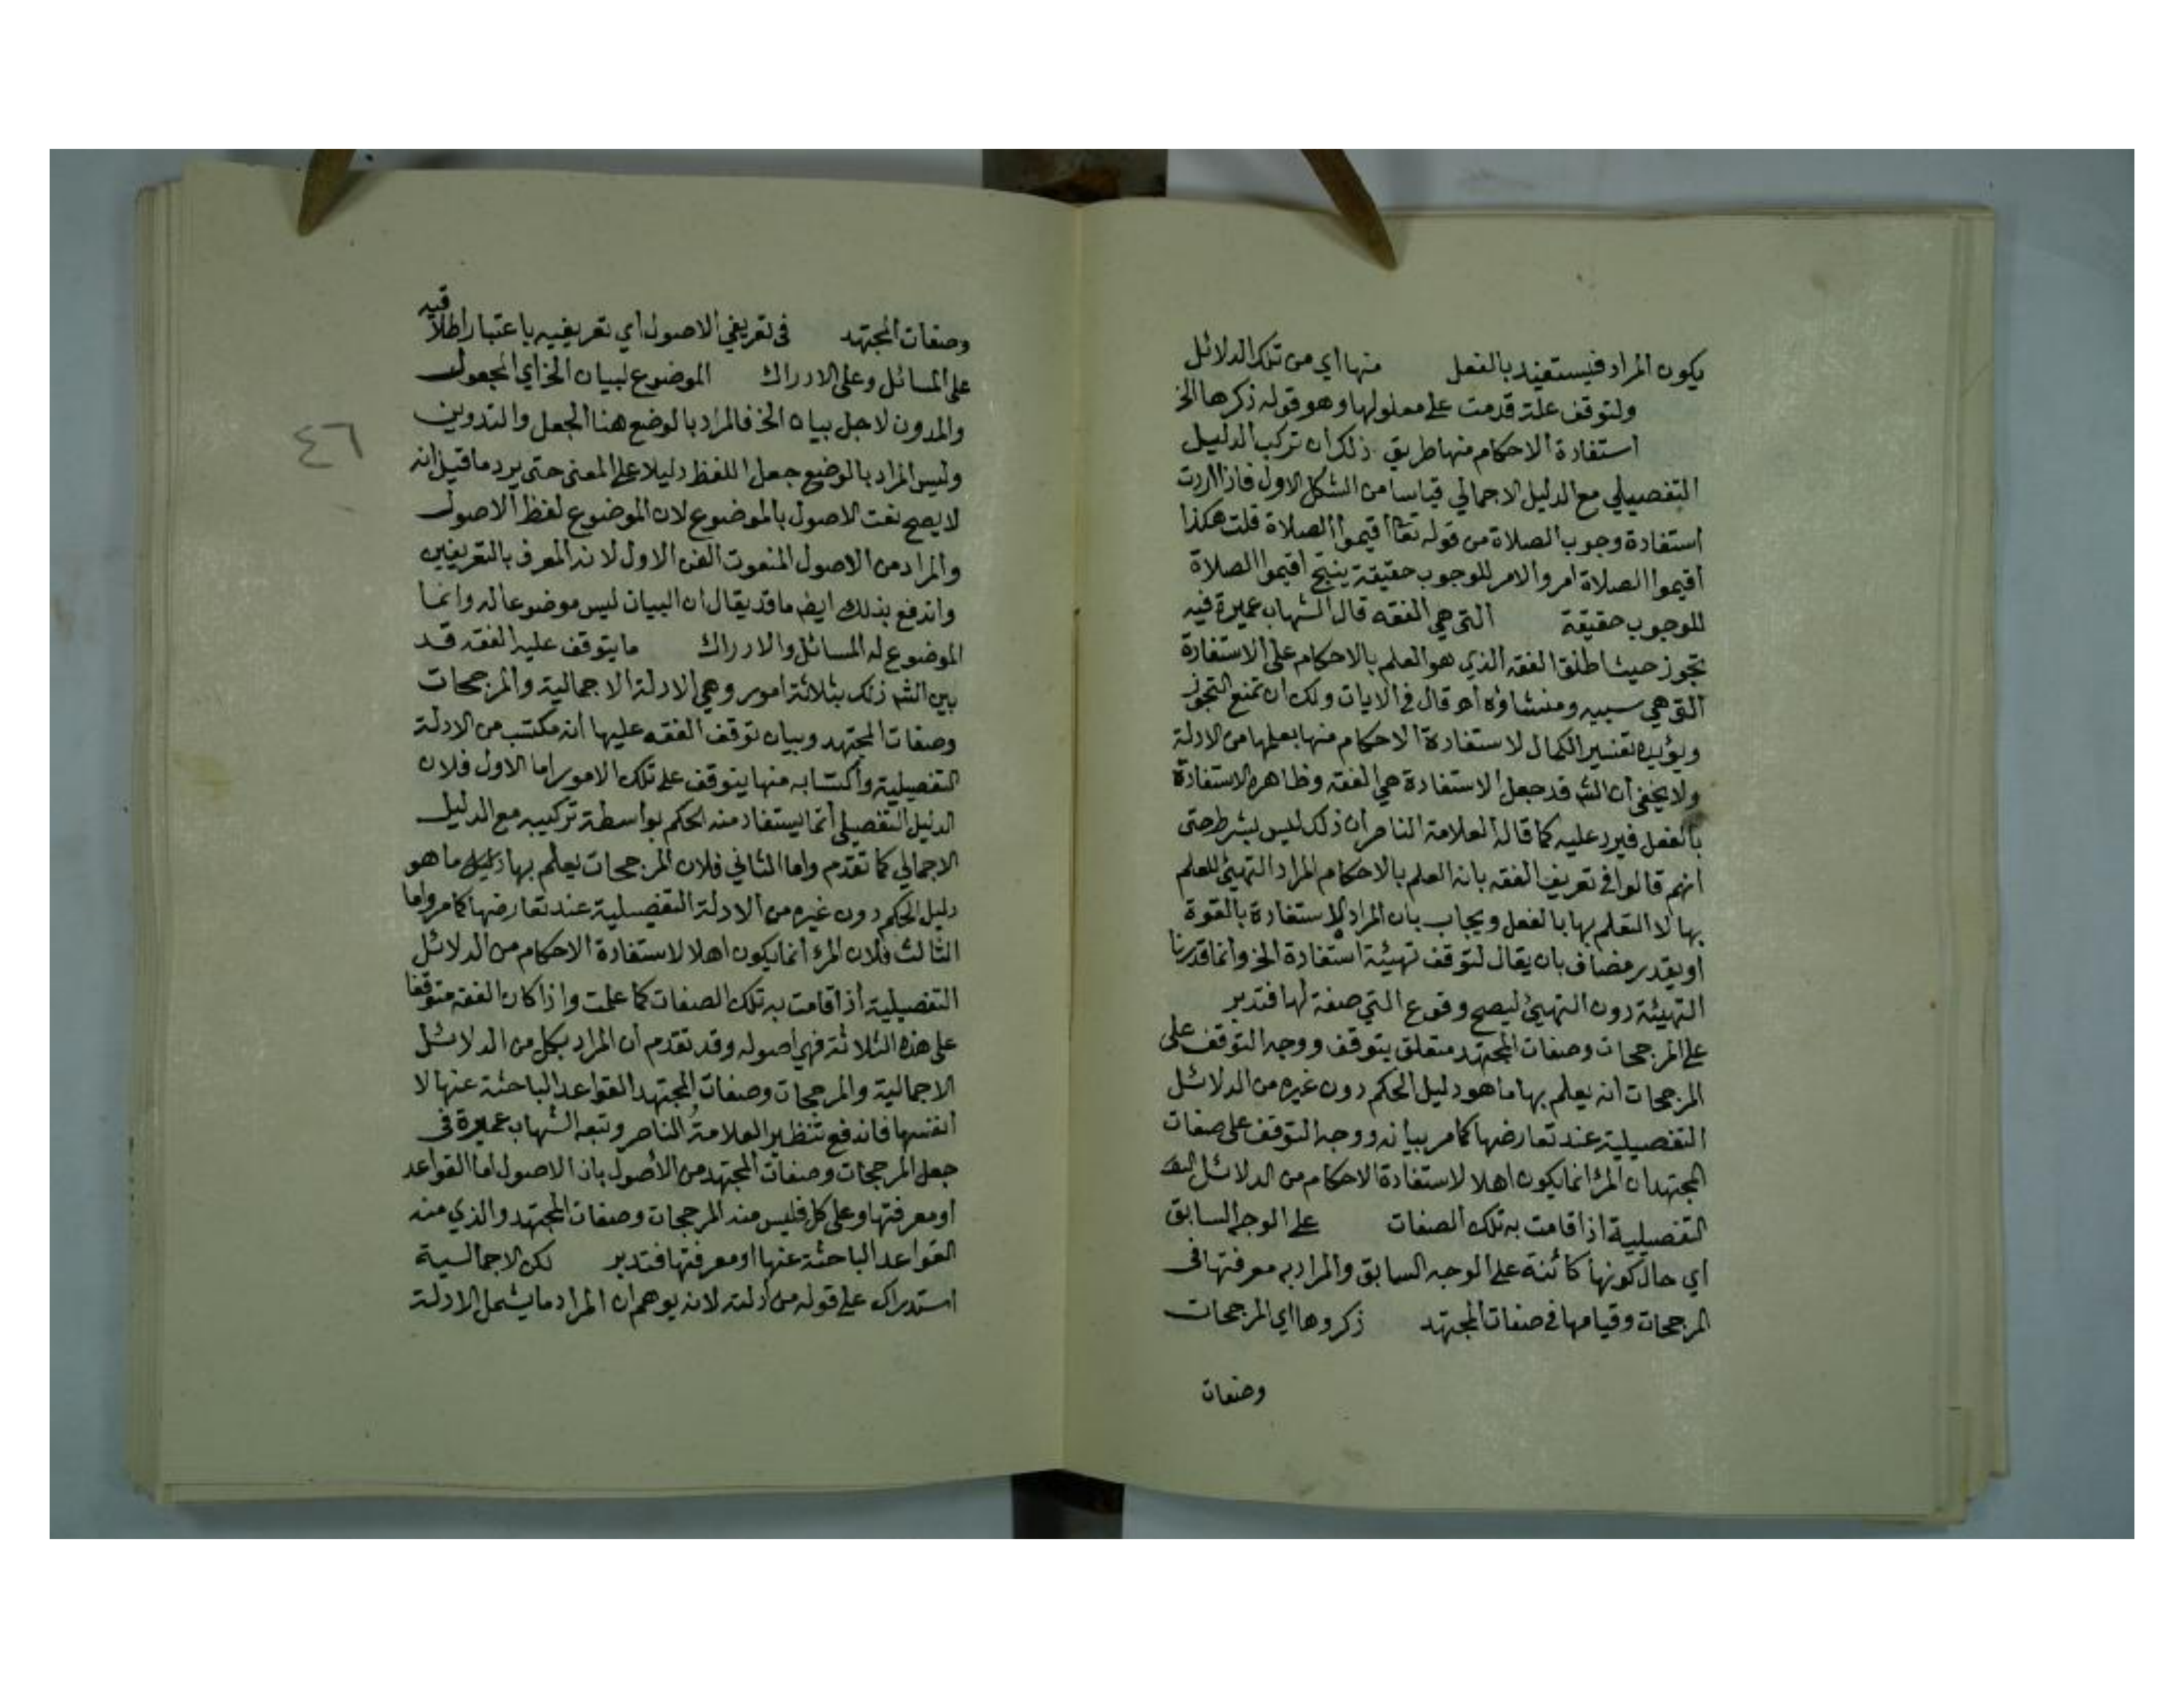 يكون المراد فيستفيد بالفعل منها اي من تلك الدلائل
ولتوقف علة قدمت على معلولها وهو قوله ذكرها الخ
استفادة الاحكام منها طريق ذلك ان تركب الدليل
التفصيلي مع الدليل الاجمالي قياسا من الشكل الاول فاذا اردت
استفادة وجوب الصلاة من قوله تعا اقيموا الصلاة قلت هكذا
اقيموا الصلاة امر والامر للوجوب حقيقة ينتج اقيموا الصلاة
للوجوب حقيقة التي هي الفقه قال الشهاب عميرة فيه
تجوز حيث اطلق الفقه الذي هو العلم بالاحكام على الاستفادة
التي هي سببه ومنشاؤه اه قال في الايات ولك ان تمنع التجوز
ويؤيده تفسير الكمال لاستفادة الاحكام منها بعلمها من الادلة
ولا يخفى ان الش قد جعل الاستفادة هي الفقه وظاهره الاستفادة
بالفعل فيرد عليه كما قاله العلامة الناصر ان ذلك ليس بشرط حتى
انهم قالوا في تعريف الفقه بانه العلم بالاحكام المراد التهيئ للعلم
بها لا التعلم بها بالفعل ويجاب بان المراد الاستفادة بالقوة
او يقدر مضاف بان يقال لتوقف تهيئة استفادة الخ وانما قدرنا
التهيئة دون التهيئ ليصح وقوع التي صفة لها فتدبر
على المرجحات وصفات المجتهد متعلق بتوقف ووجه التوقف على
المرجحات انه يعلم بها ما هو دليل الحكم دون غيره من الدلائل
التفصيلية عند تعارضها كما مر بيانه ووجه التوقف على صفات
المجتهد ان المرء انما يكون اهلا لاستفادة الاحكام من الدلائل
التفصيلية اذا قامت به تلك الصفات على الوجه السابق
اي حال كونها كائنة على الوجه السابق والمراد به معرفتها في
المرجحات وقيامها في صفات المجتهد ذكروها اي المرجحات
وصفات
وصفات المجتهد في تعريفي الاصول اي تعريفيه باعتبار اطلاقيه
على المسائل وعلى الادراك الموضوع لبيان الخ اي المجعول
والمدون لاجل بيان الخ فالمراد بالوضع هنا الجعل والتدوين
وليس المراد بالوضع جعل اللفظ دليلا على المعنى حتى يرد ما قيل انه
لا يصح نعت الاصول بالموضوع لان الموضوع لفظ الاصول
والمراد من الاصول المنعوت الفن الاول لانه المعرف بالتعريفين
واندفع بذلك ايضا ما قد يقال ان البيان ليس موضوعا له وانما
الموضوع له المسائل والادراك ما يتوقف عليه الفقه قد
بين الش ذلك بثلاثة امور وهي الادلة الاجمالية والمرجحات
وصفات المجتهد وبيان توقف الفقه عليها انه مكتسب من الادلة
التفصيلية واكتسابه منها يتوقف على تلك الامور اما الاول فلان
الدليل التفصيلي انما يستفاد منه الحكم بواسطة تركيبه مع الدليل
الاجمالي كما تقدم واما الثاني فلان المرجحات يعلم بها ما هو
دليل الحكم دون غيره من الادلة التفصيلية عند تعارضها كما مر واما
الثالث فلان المرء انما يكون اهلا لاستفادة الاحكام من الدلائل
التفصيلية اذا قامت به تلك الصفات كما علمت واذا كان الفقه متوقفا
على هذه الثلاثة فهي اصوله وقد تقدم ان المراد بكل من الدلائل
الاجمالية والمرجحات وصفات المجتهد القواعد الباحثة عنها لا
انفسها فاندفع تنظير العلامة الناصر وتبعه الشهاب عميرة في
جعل المرجحات وصفات المجتهد من الأصول بان الاصول اما القواعد
او معرفتها وعلى كل فليس منه المرجحات وصفات المجتهد والذي منه
القواعد الباحثة عنها او معرفتها فتدبر لكن الاجمالية
استدراك على قوله من ادلته لانه يوهم ان المراد ما يشمل الادلة
٤٦